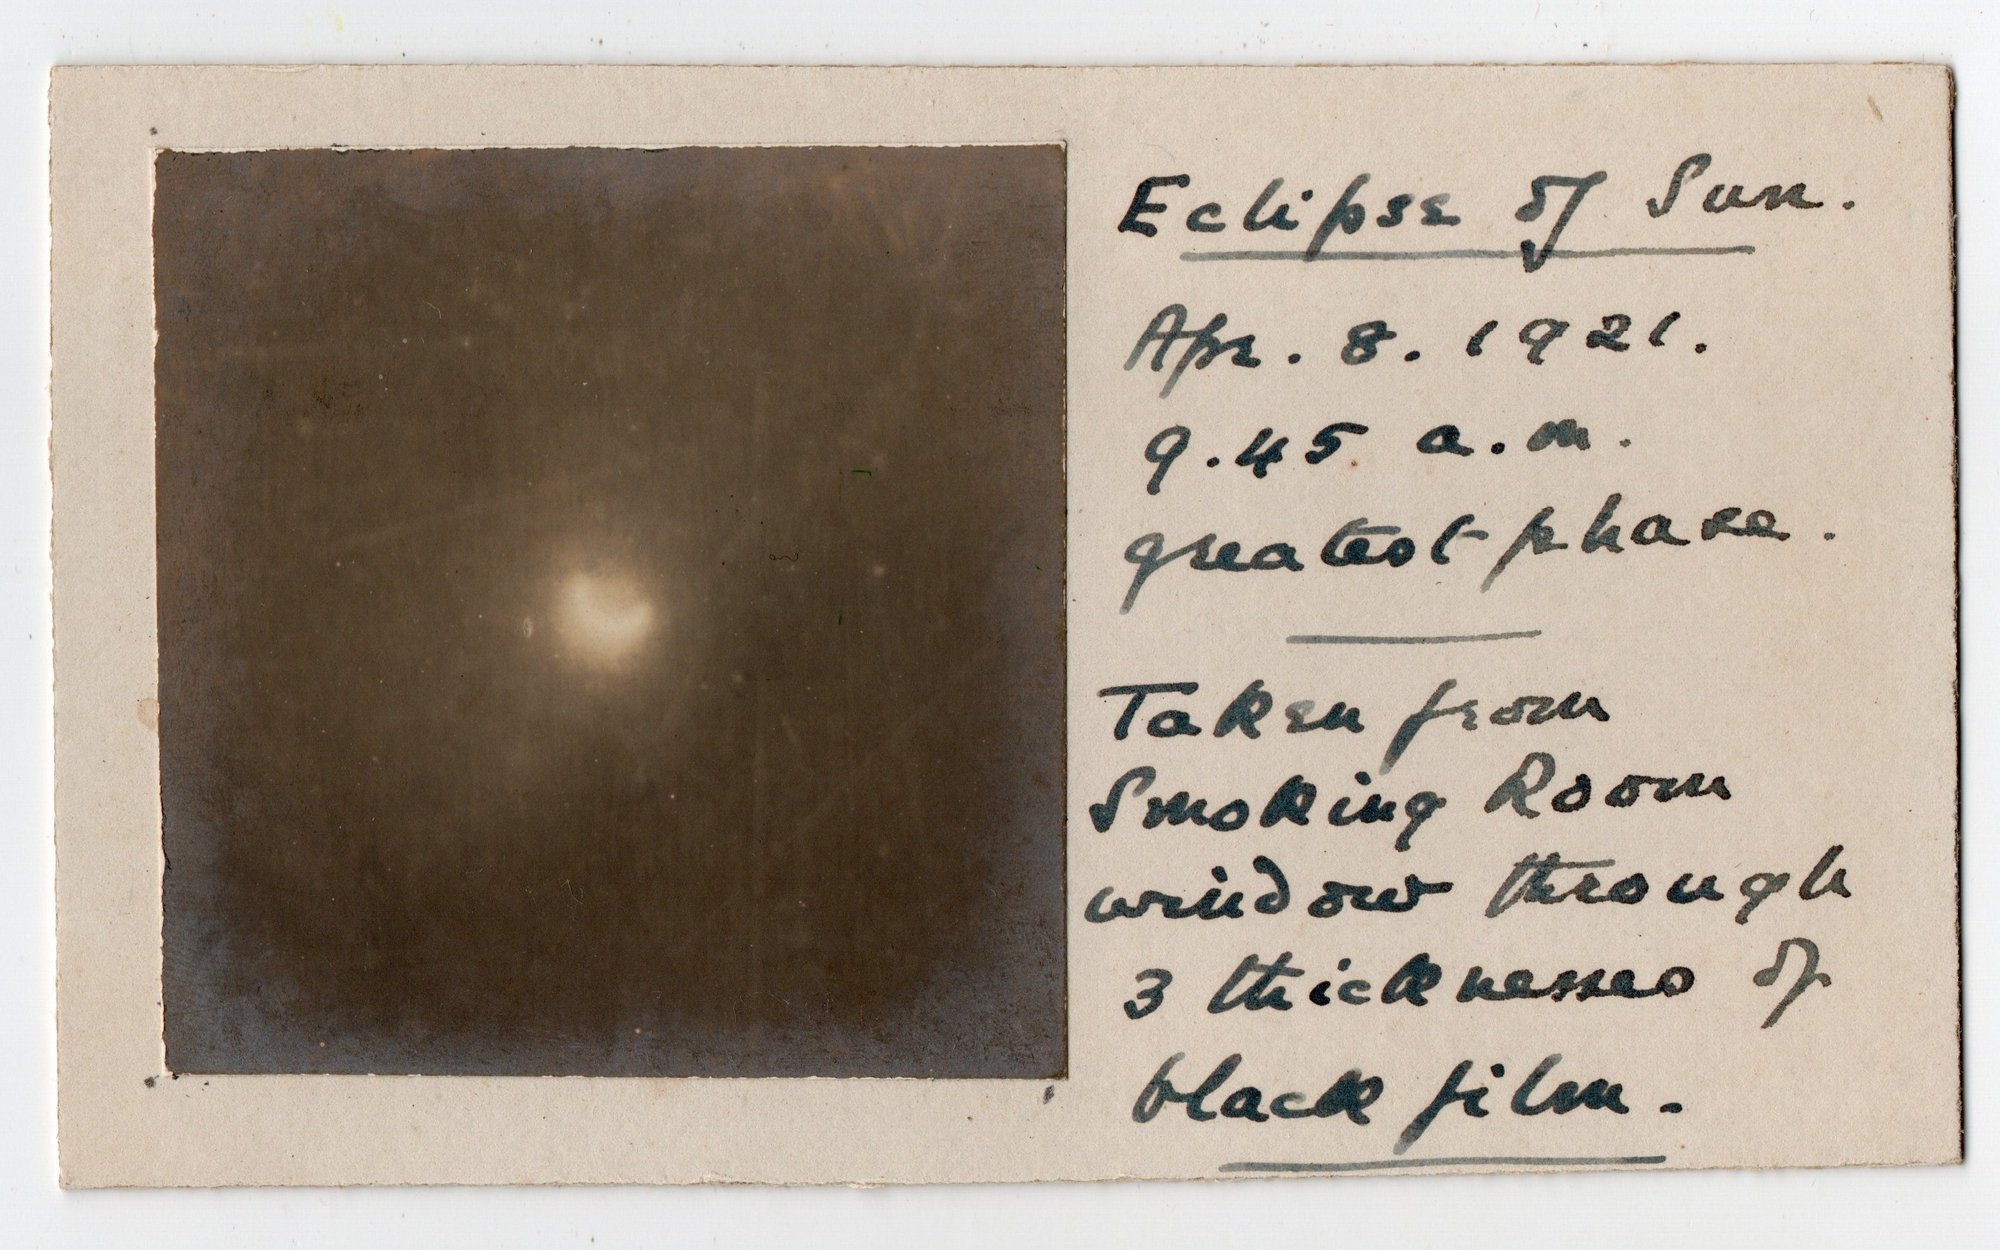 Eclipse of Sun.
Apr. 8. 1921.
9.45 a.m.
greatest phase.
Taken from
Smoking Room
window through
3 thicknesses of
black film.